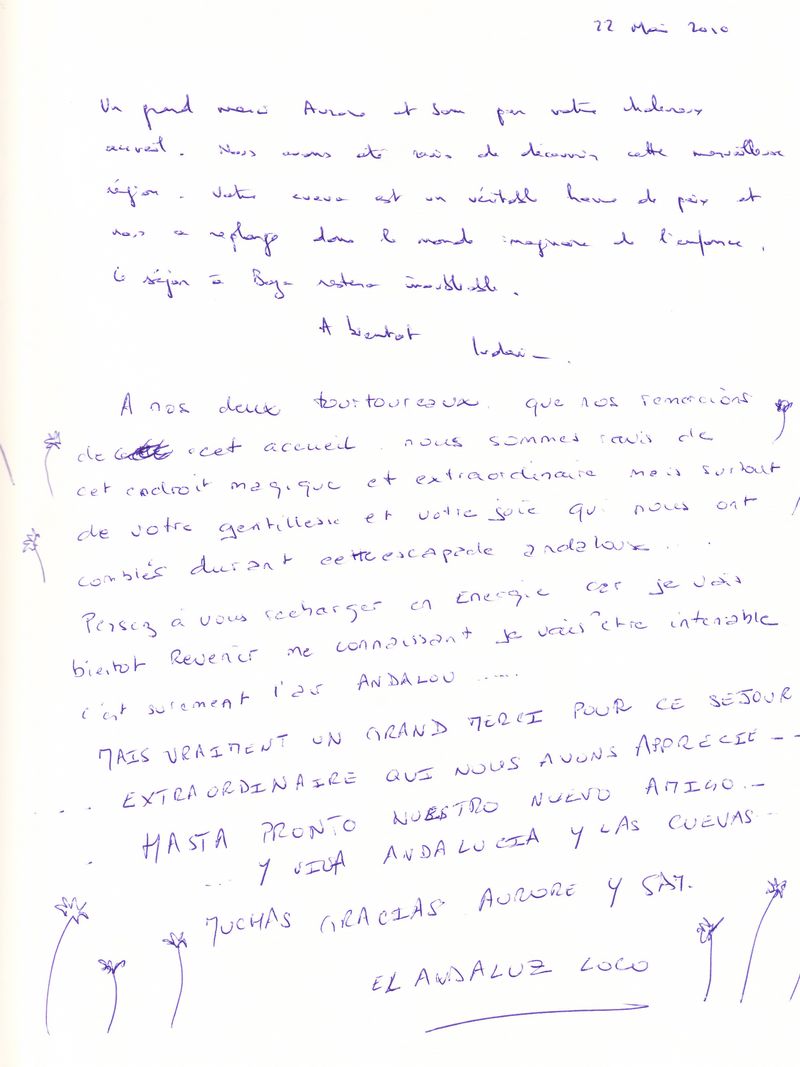 22 Mai 2010
Un grand merci Aurore et Sam par votre chaleureux
accueil. Nous avons été ravis de découvrir cette merveilleuse
région. Votre cueva est un véritable havre de paix et
nous a replongé dans le monde imaginaire de l'enfance.
Ce séjour à Baza restera inoubliable.
A bientot
A nos deux tourtoureaux que nos remercions
de cet accueil nous sommes ravis de
cet endroit magique et extraordinaire mais surtout
de votre gentillesse et votre joie qui nous ont
comblés durant cette escapade andaloux...
Pensez à vous recharger en Energie car je vais
bientot Revenir me connaissant je vais être intenable
c'est surement l'air ANDALOU .....
MAIS VRAIMENT UN GRAND MERCI POUR CE SEJOUR
.. EXTRAORDINAIRE QUI NOUS AVONS APPRECIE --
. HASTA PRONTO NUESTRO NUEVO AMIGO.-
... Y VIVA ANDALUCIA Y LAS CUEVAS -
MUCHAS GRACIAS AURORE Y SAM.
EL ANDALUZ LOCO